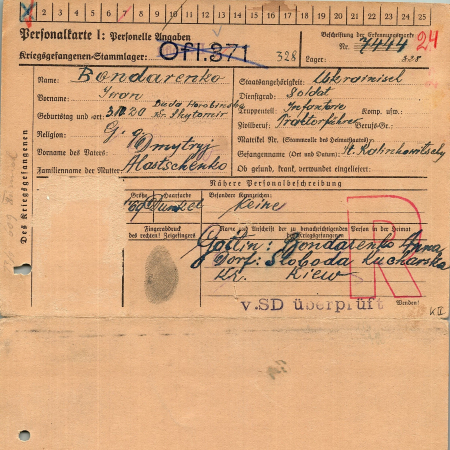 1 2 3 4 5 6 7 8 9 10 11 12 13 14 15 16 17 18 19 20 21 22 23 24 25
Personalkarte I: Personelle Angaben
Beschriftung der Erkennungsmarke
Nr. 7444 24
Kriegsgefangenen-Stammlager: Ofl.371 328
Lager: 328
Des Kriegsgefangenen
Name: Bondarenko
Staatsangehörigkeit: Ukrainisch
Vorname: Iwan
Dienstgrad: Soldat
Geburtstag und -ort: 20 Buda Worobinska
Kr. Shytomir
Truppenteil: Infanterie Komp. usw.:
Zivilberuf: Traktorführer Berufs-Gr.:
Religion: G. o
Matrikel Nr. (Stammrolle des Heimatstaates):
Vorname des Vaters: Dmytryj
Gefangennahme (Ort und Datum): St. Kalinkowitschy
Familienname der Mutter: Alastschenko
Ob gesund, krank, verwundet eingeliefert:
Nähere Personalbeschreibung
Größe Haarfarbe
Besondere Kennzeichen:
169 Dunkel
keine
Fingerabdruck
des rechten! Zeigefingers
Name u. Anschrift der zu benachrichtigenden Person in der Heimat
des Kriegsgefangenen
Gattin: Bondarenko Anna
Dorf: Sloboda Kucharska
Kr. Kiew
R
v.SD überprüft
Wenden!
K II